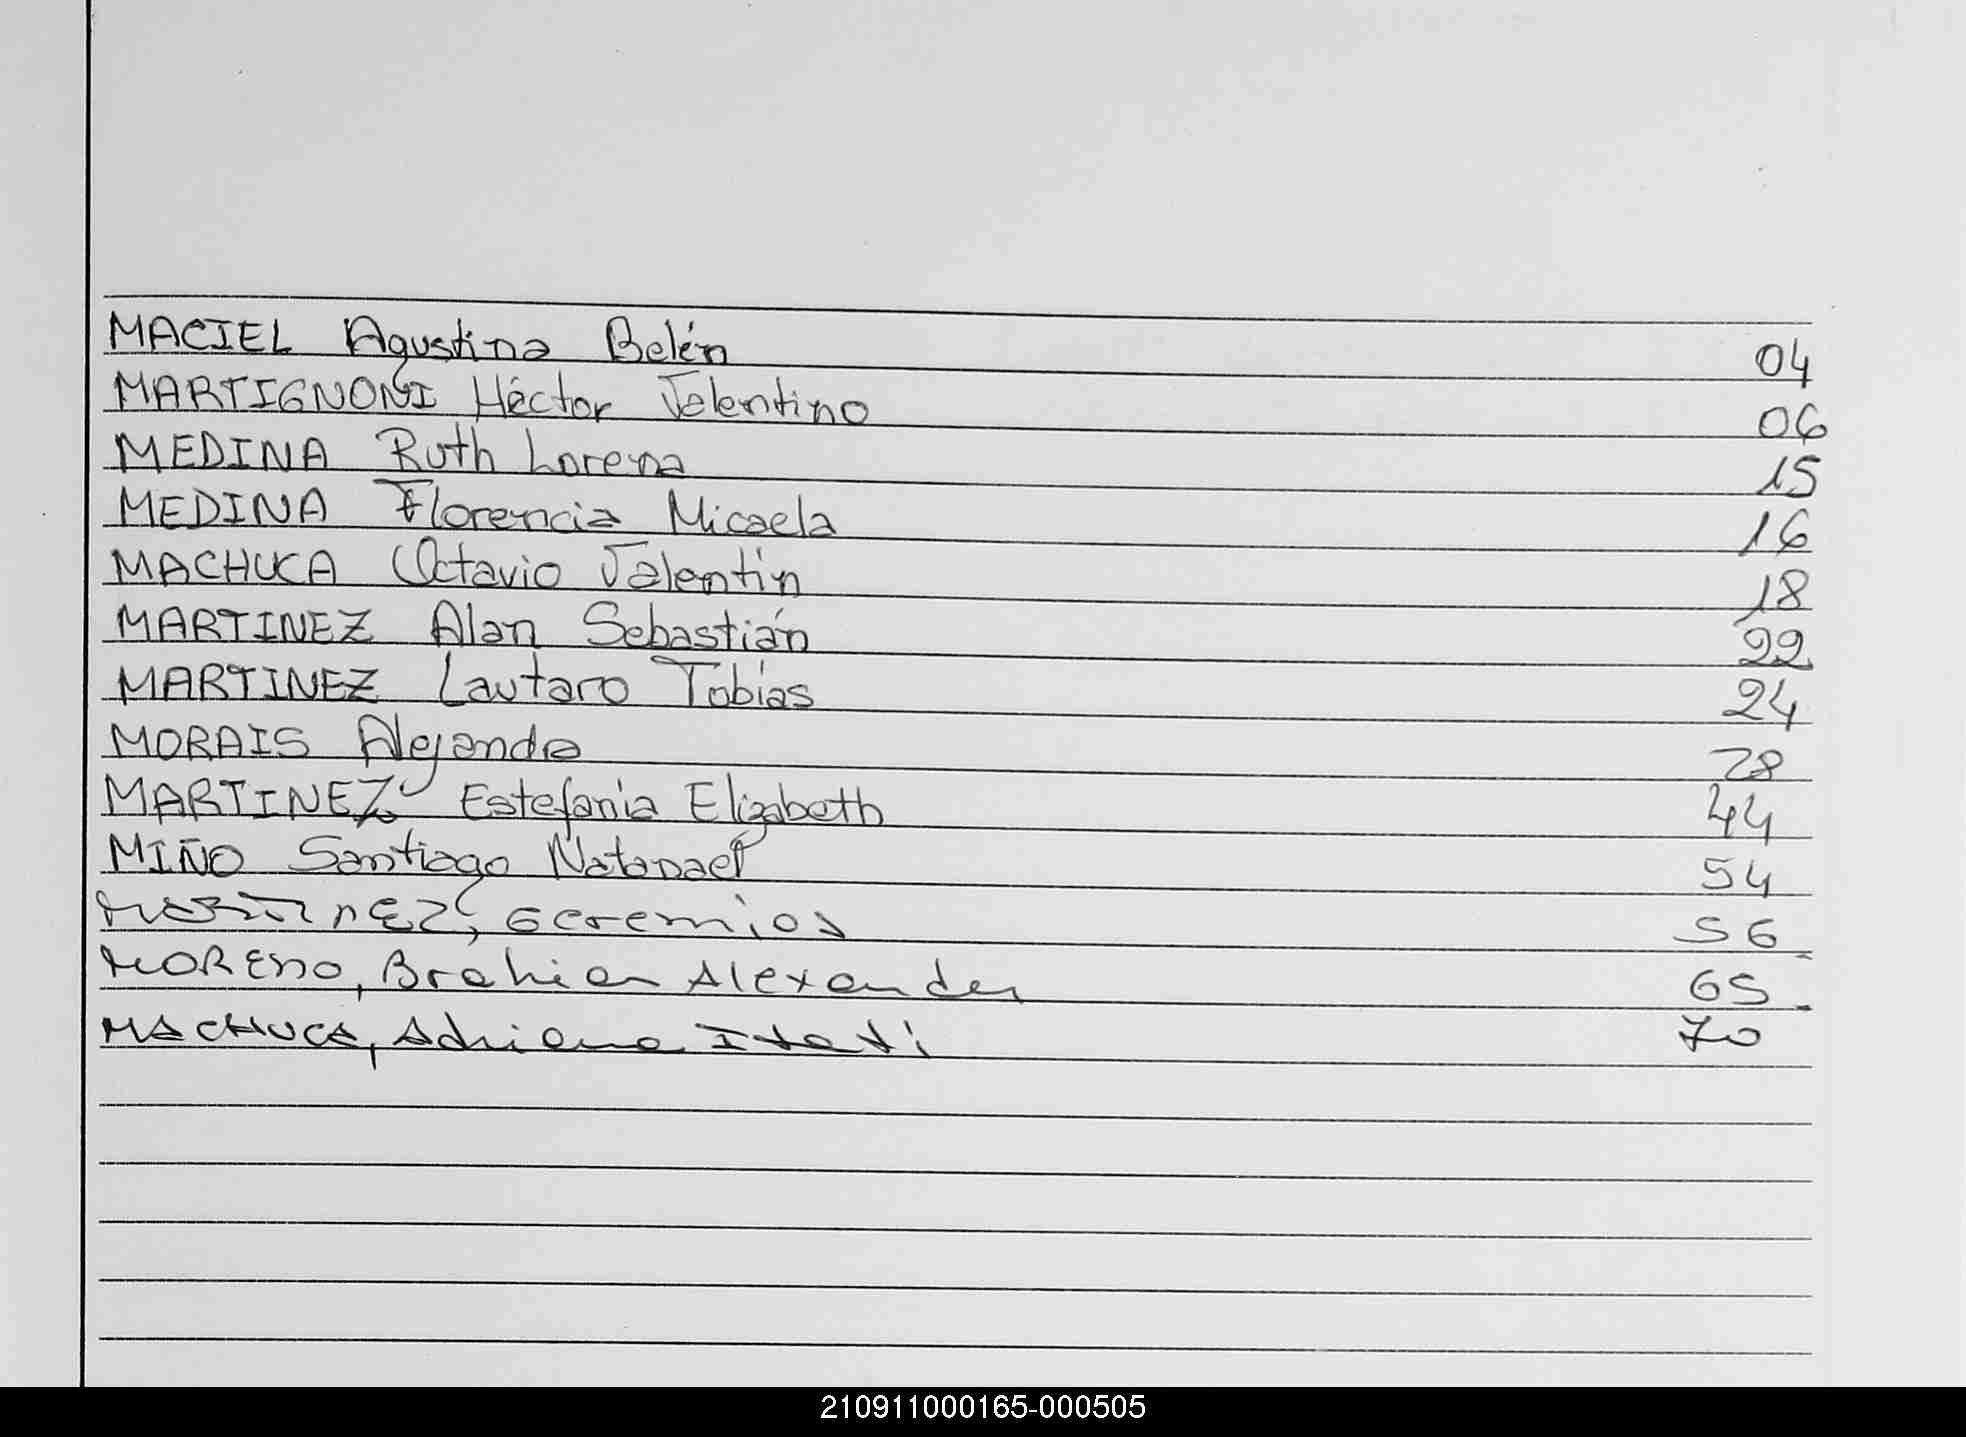 MACIEL Agustina Belén 04
MARTIGNONI Héctor Valentino 06
MEDINA Ruth Lorena 15
MEDINA Florencia Micaela 16
MACHUCA Octavio Valentín 18
MARTINEZ Alan Sebastián 22
MARTINEZ Lautaro Tobías 24
MORAIS Alejandra 28
MARTINEZ Estefania Elizabeth 44
MIÑO Santiago Natanael 54
MARTINEZ, Geremias 56
MORENO, Brahian Alexander 65
MACHUCA, Adriana Itati 70
210911000165-000505